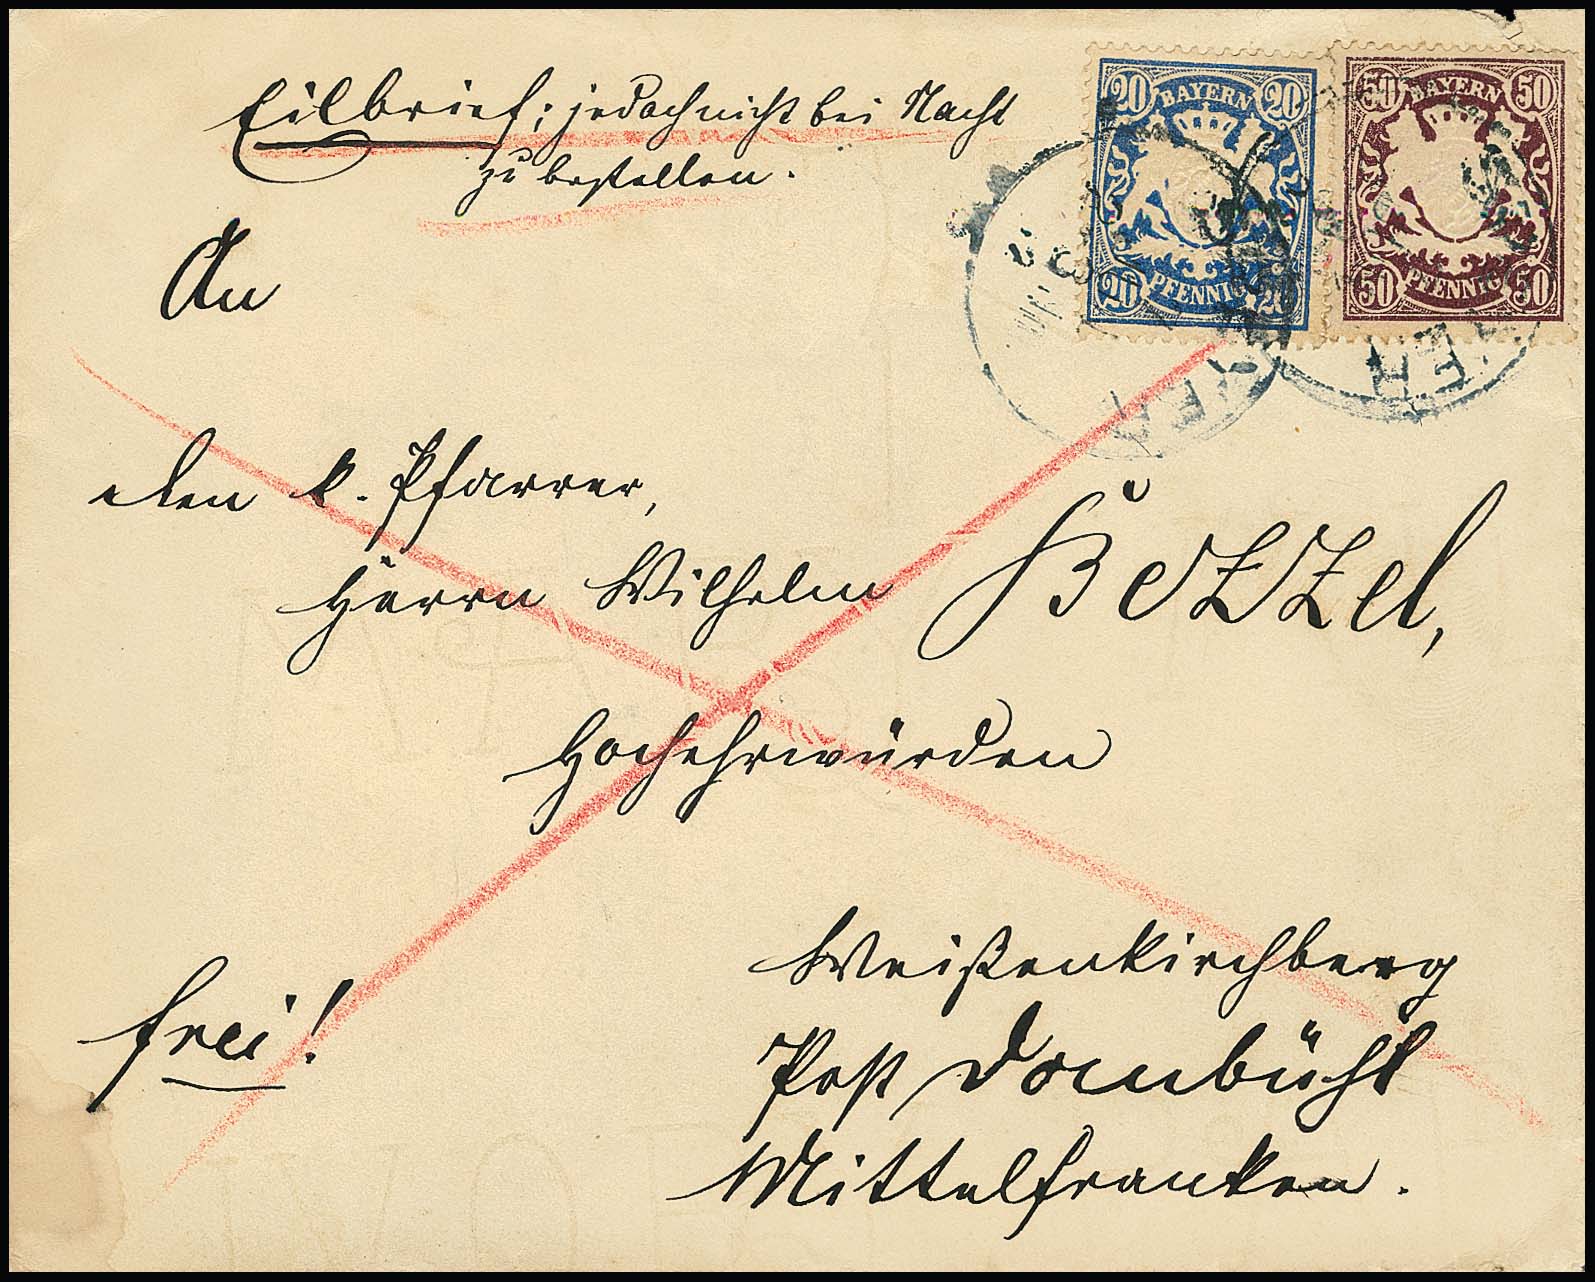 Eilbrief; jedoch nicht bei Nacht
zu bestellen.
20 BAYERN 20
20 PFENNIG 20
50 BAYERN 50
50 PFENNIG 50
An
den k. Pfarrer,
Herrn Wilhelm Bezzel,
Hochehrwürden
Weißenkirchberg
frei!
Post Dombühl
Mittelfranken.